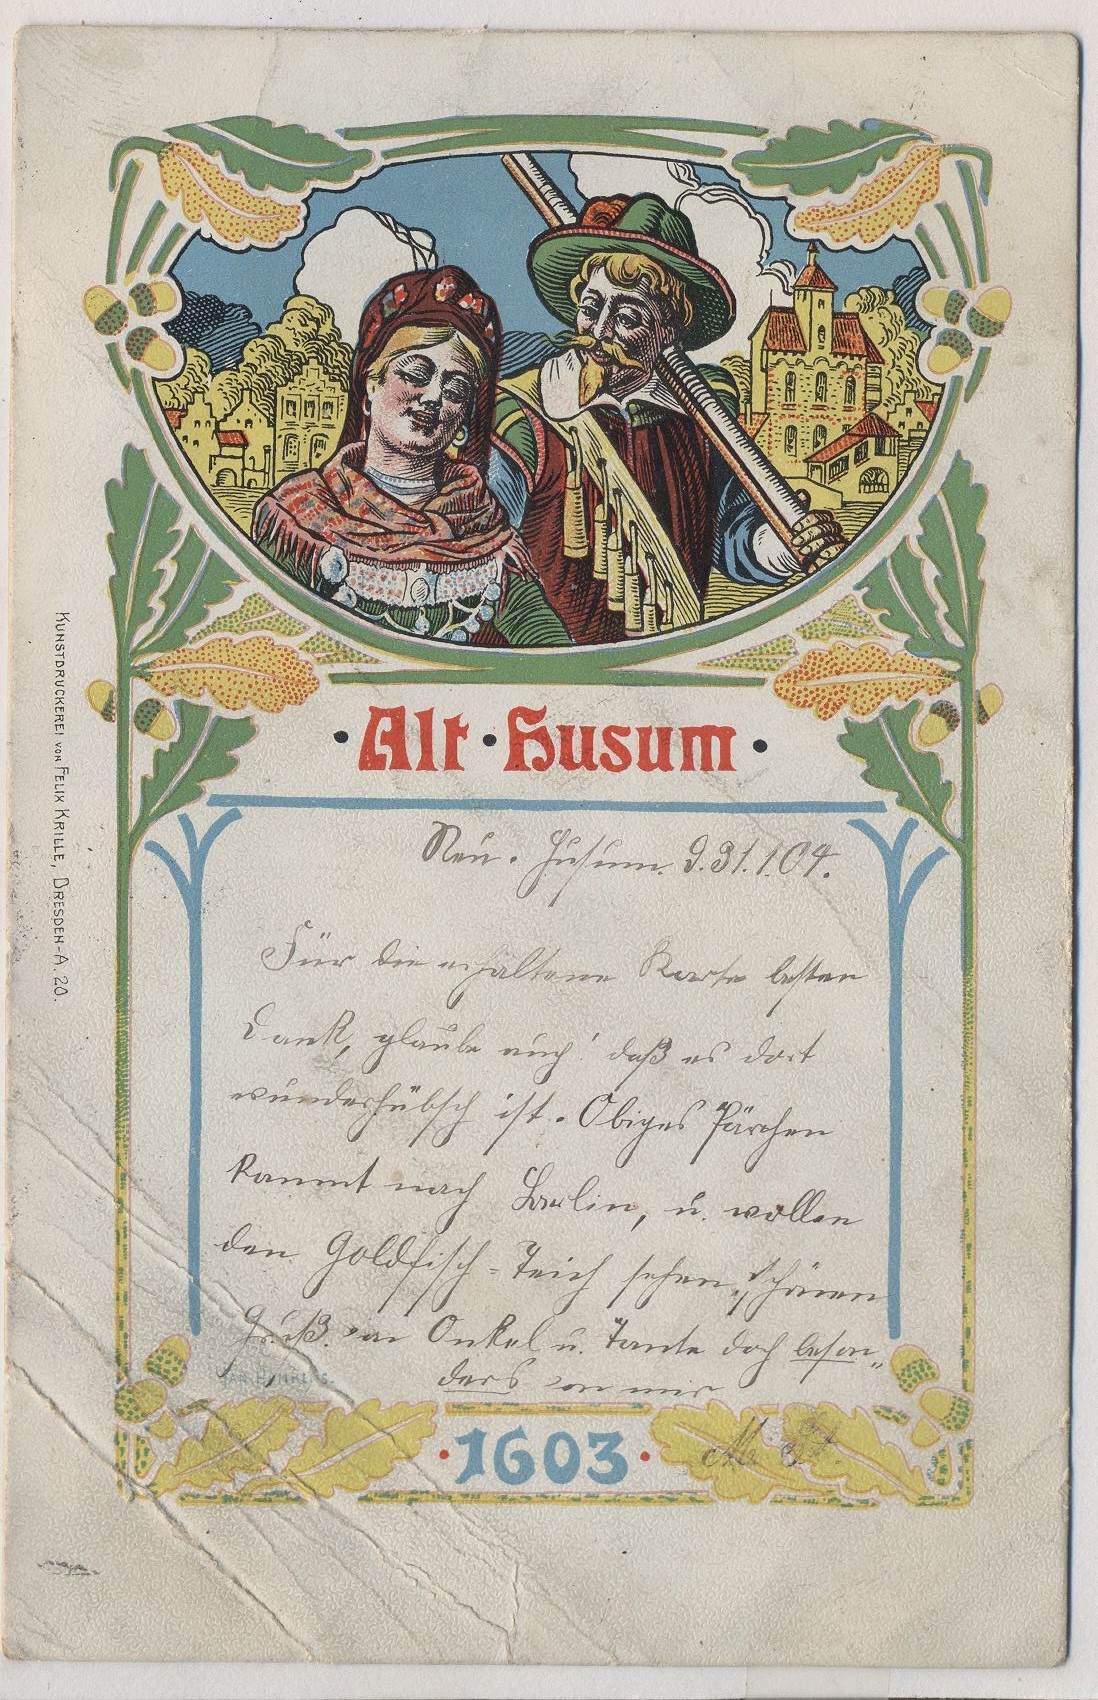 · Alt · Husum ·
Neu-Husum. d. 31.1.04.
Für die erhaltene Karte besten
Dank, glaube auch! daß es dort
wunderhübsch ist. Obiges Pärchen
kommt nach Berlin, u. wollen
den Goldfisch-Teich sehen, schönen
Gruß. von Onkel u. Tante doch beson„
ders von mir
· 1603 ·
KUNSTDRUCKEREI VON FELIX KRILLE, DRESDEN-A. 20.